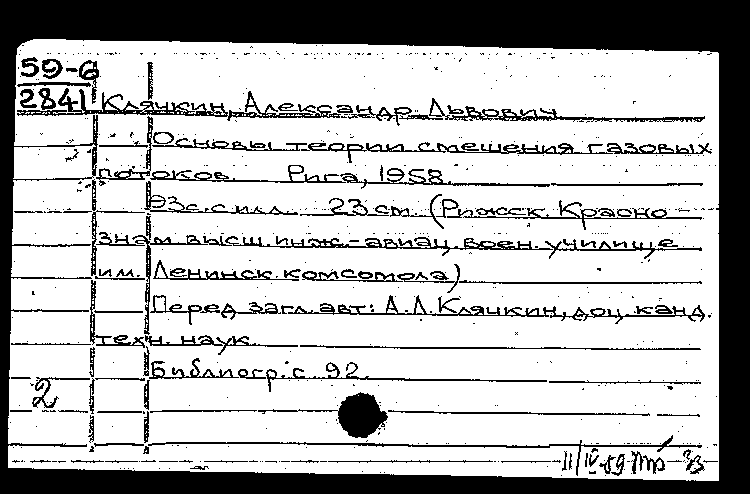 59-6
2841 Клячкин, Александр Львович
Основы теории смешения газовых
потоков. Рига, 1958.
93 с. с илл. 23 см. (Рижск. Красно-
знам. высш. инж.-авиац. воен. училище
им. Ленинск. комсомола)
Перед загл. авт.: А.Л. Клячкин, доц. канд.
техн. наук.
Библиогр.: с. 92.
2
11/IV-59